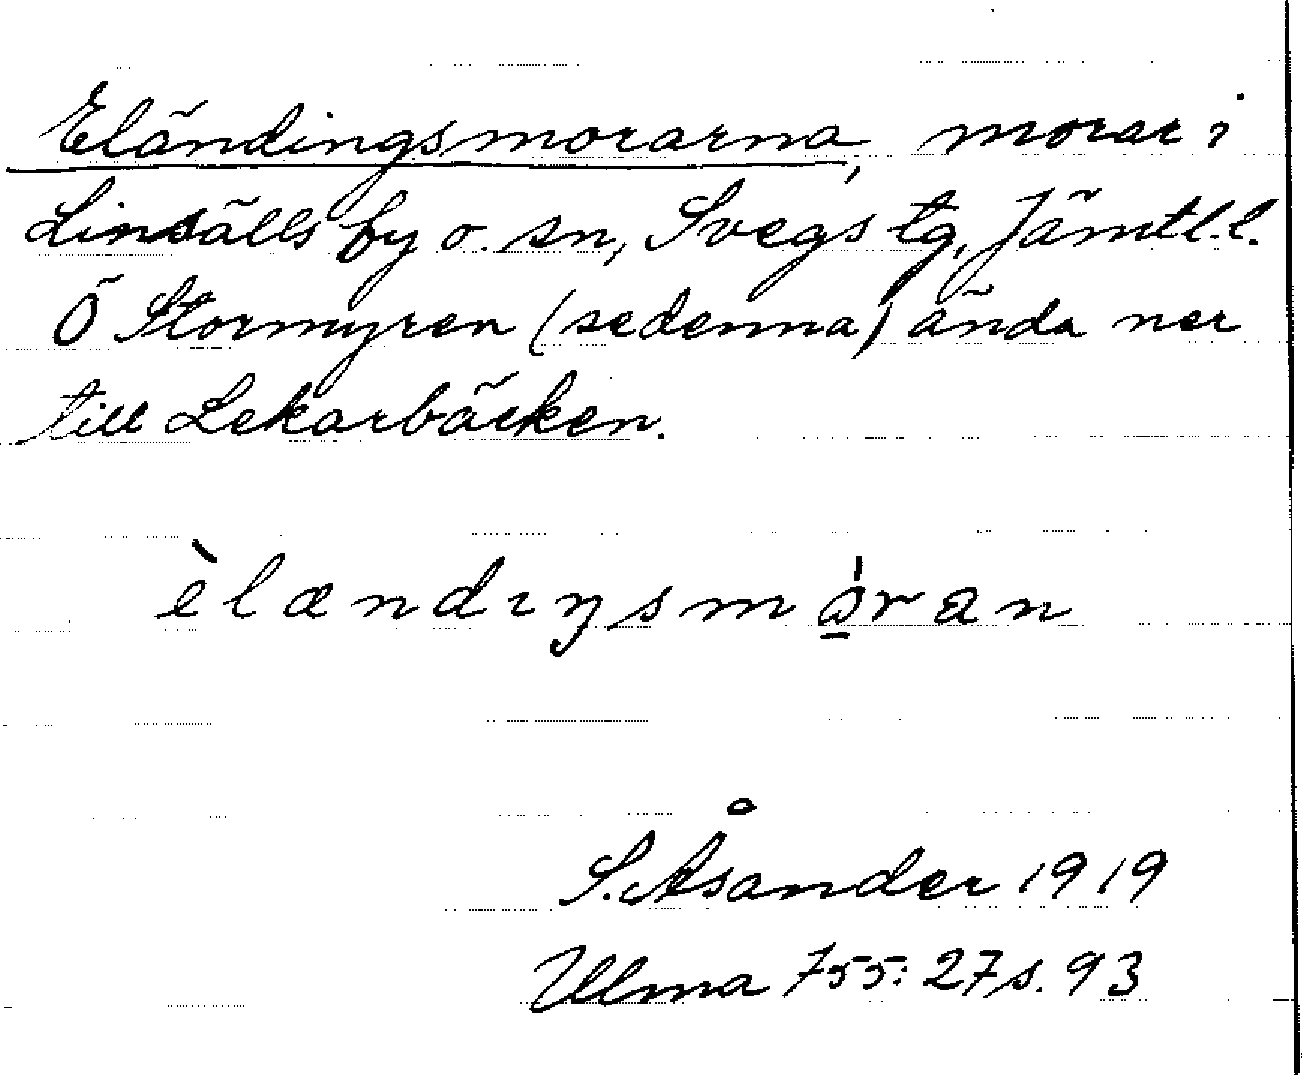 Eländingsmorarna, morar i
Linsälls by o. sn, Svegs tg, Jämtl. l.
Ö Stormyren (sedenna) ända ner
till Lekarbäcken.
èlændıŋsmo̲̍ran
S. Åsander 1919
Ulma 755: 27 s. 93